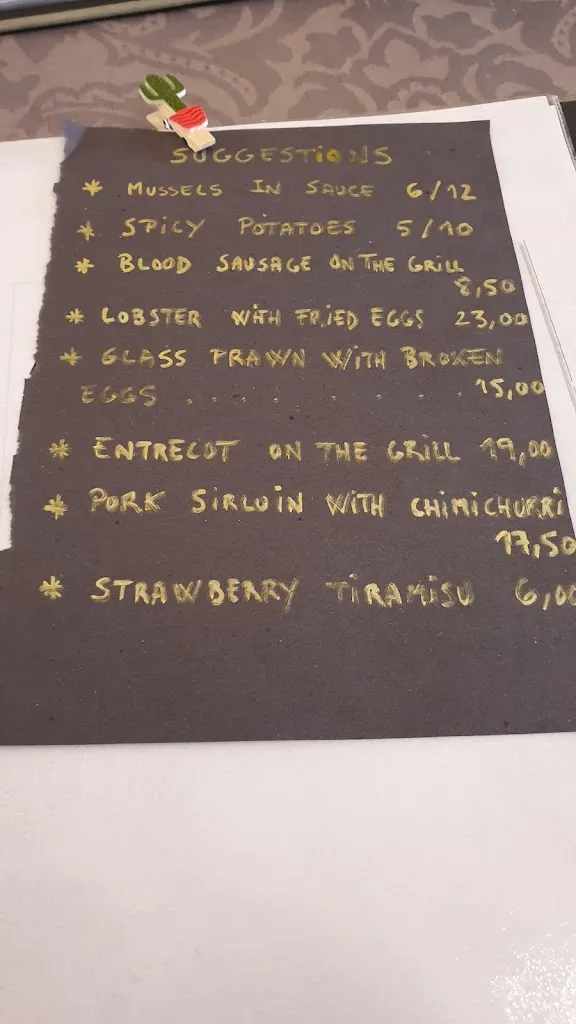 SUGGESTIONS
* MUSSELS IN SAUCE 6/12
* SPICY POTATOES 5/10
* BLOOD SAUSAGE ON THE GRILL
8,50
* LOBSTER WITH FRIED EGGS 23,00
* GLASS PRAWN WITH BROKEN
EGGS . . . . . . . . 15,00
* ENTRECOT ON THE GRILL 19,00
* PORK SIRLOIN WITH CHIMICHURRI
17,50
* STRAWBERRY TIRAMISU 6,00